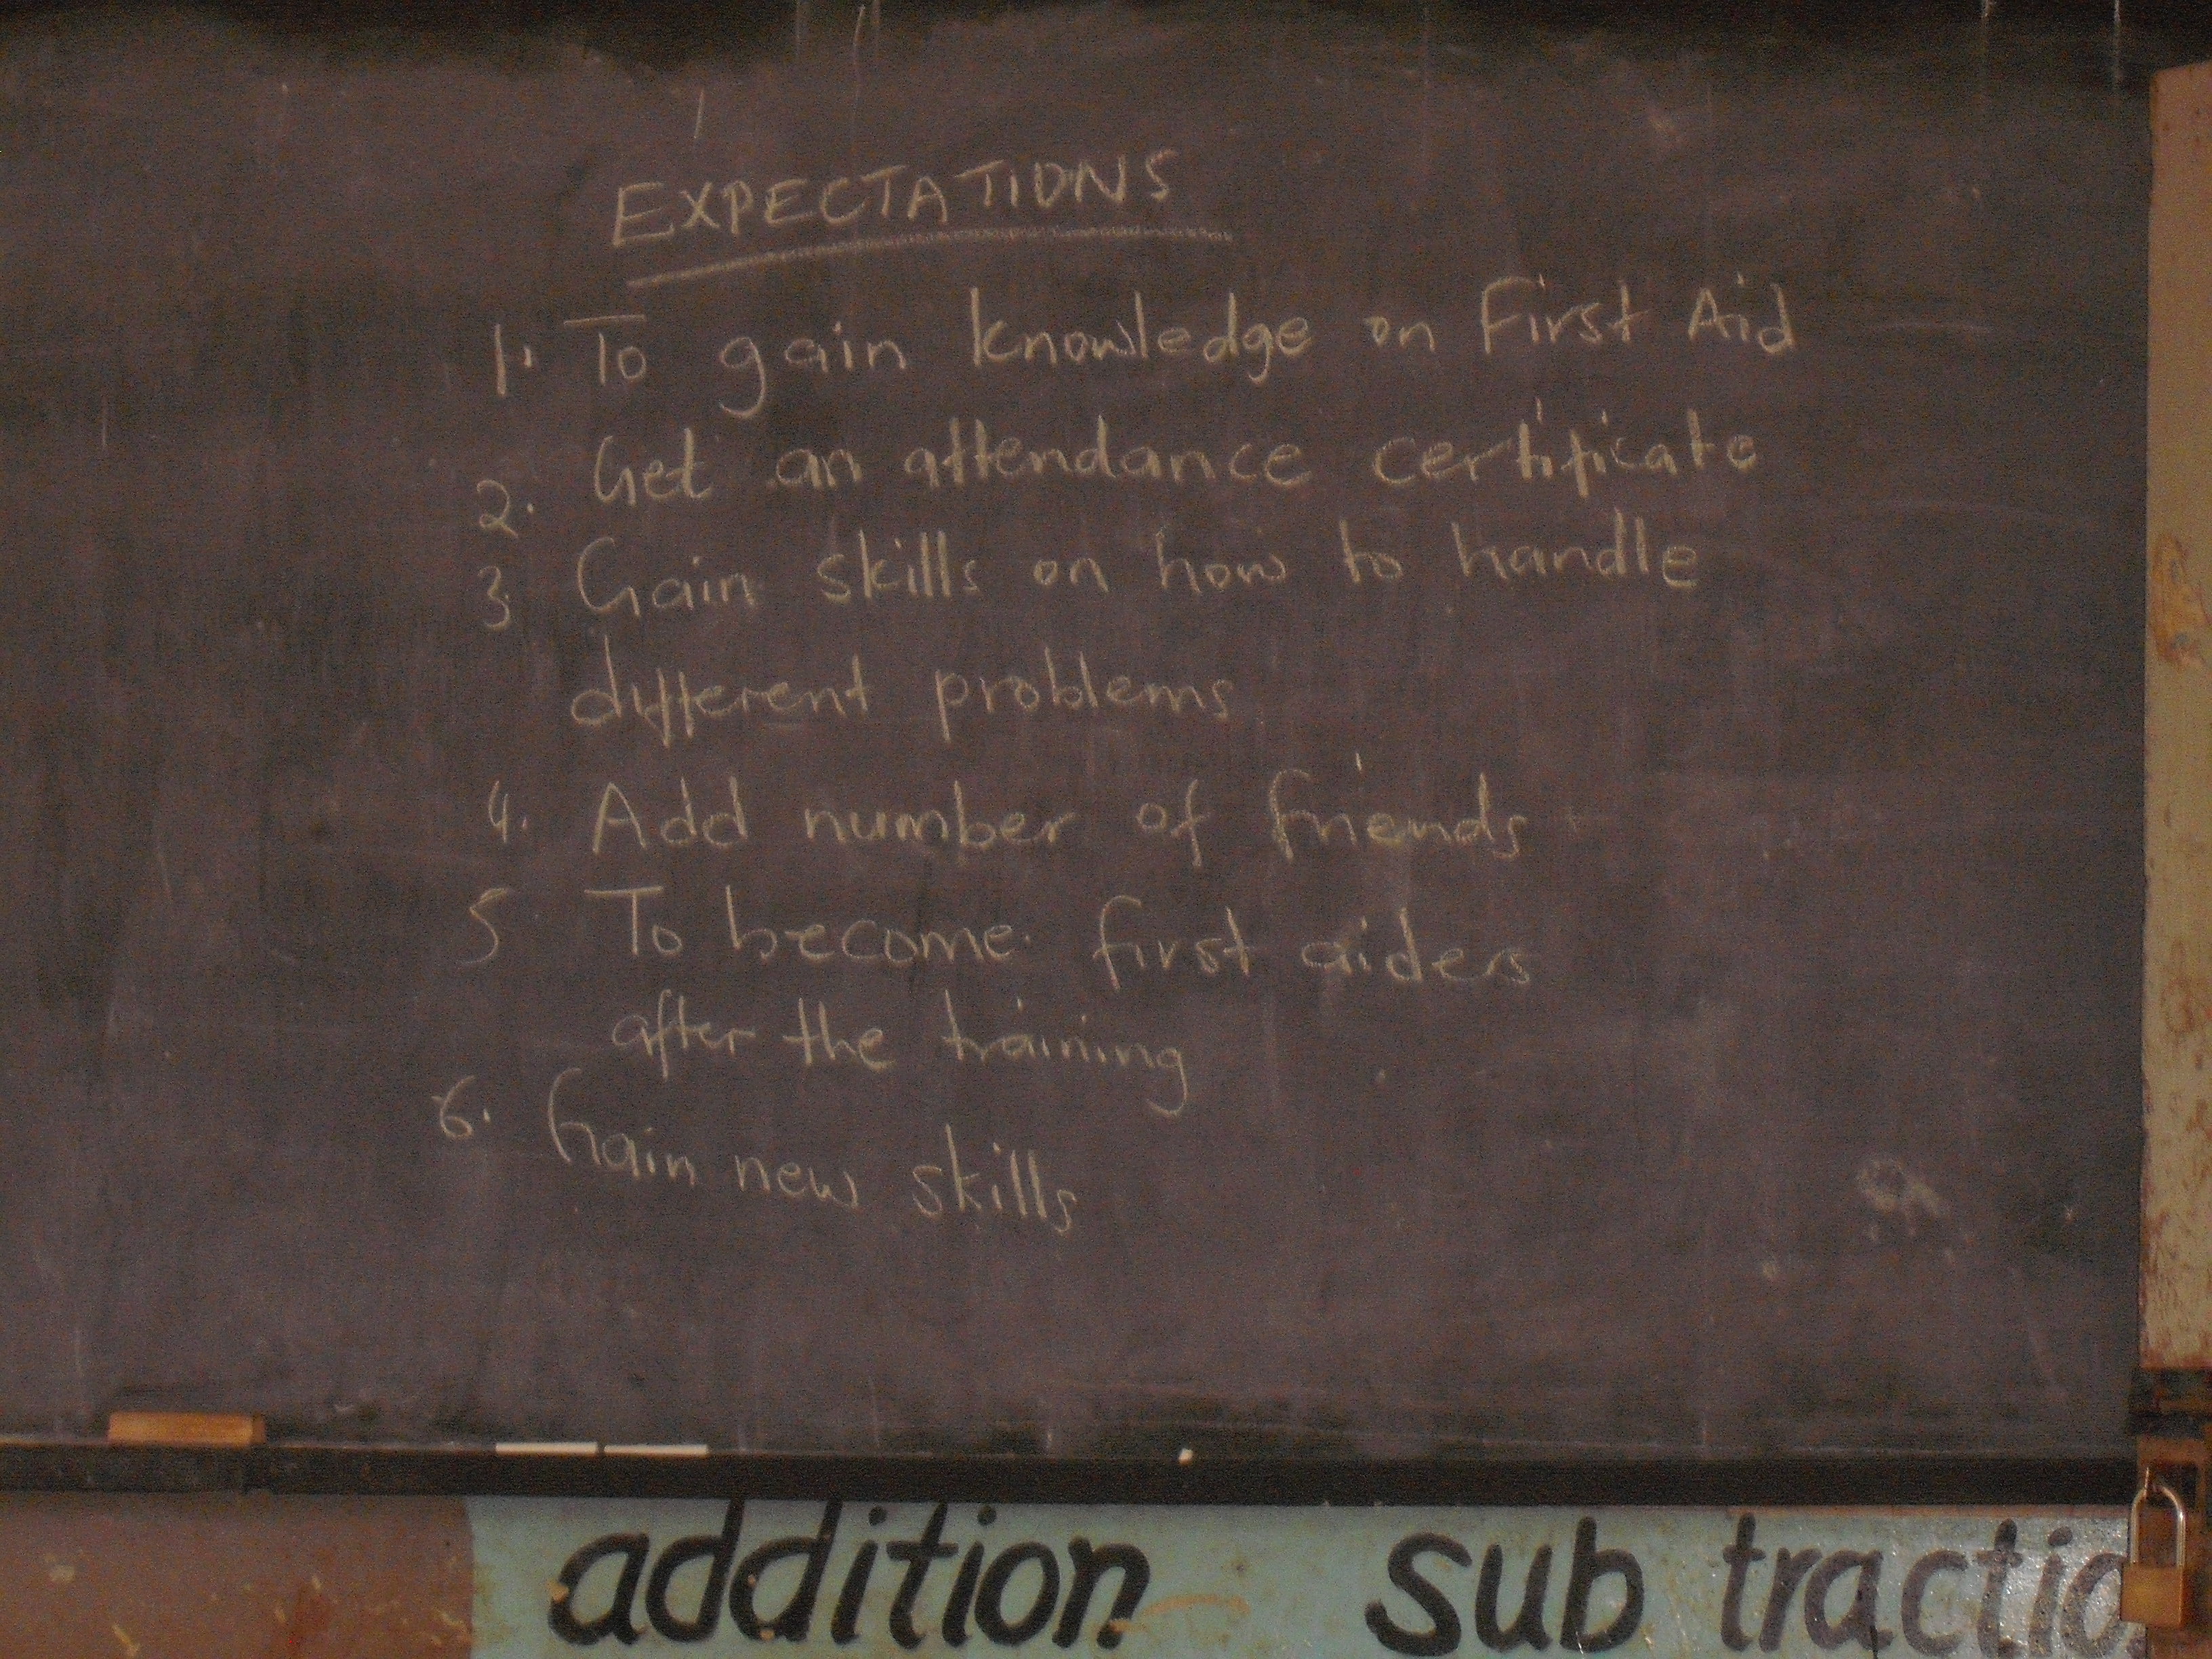 EXPECTATIONS
1. To gain knowledge on First Aid
2. Get an attendance certificate
3 Gain skills on how to handle
different problems
4. Add number of friends
5 To become first aiders
after the training
6. Gain new skills
addition sub tractio